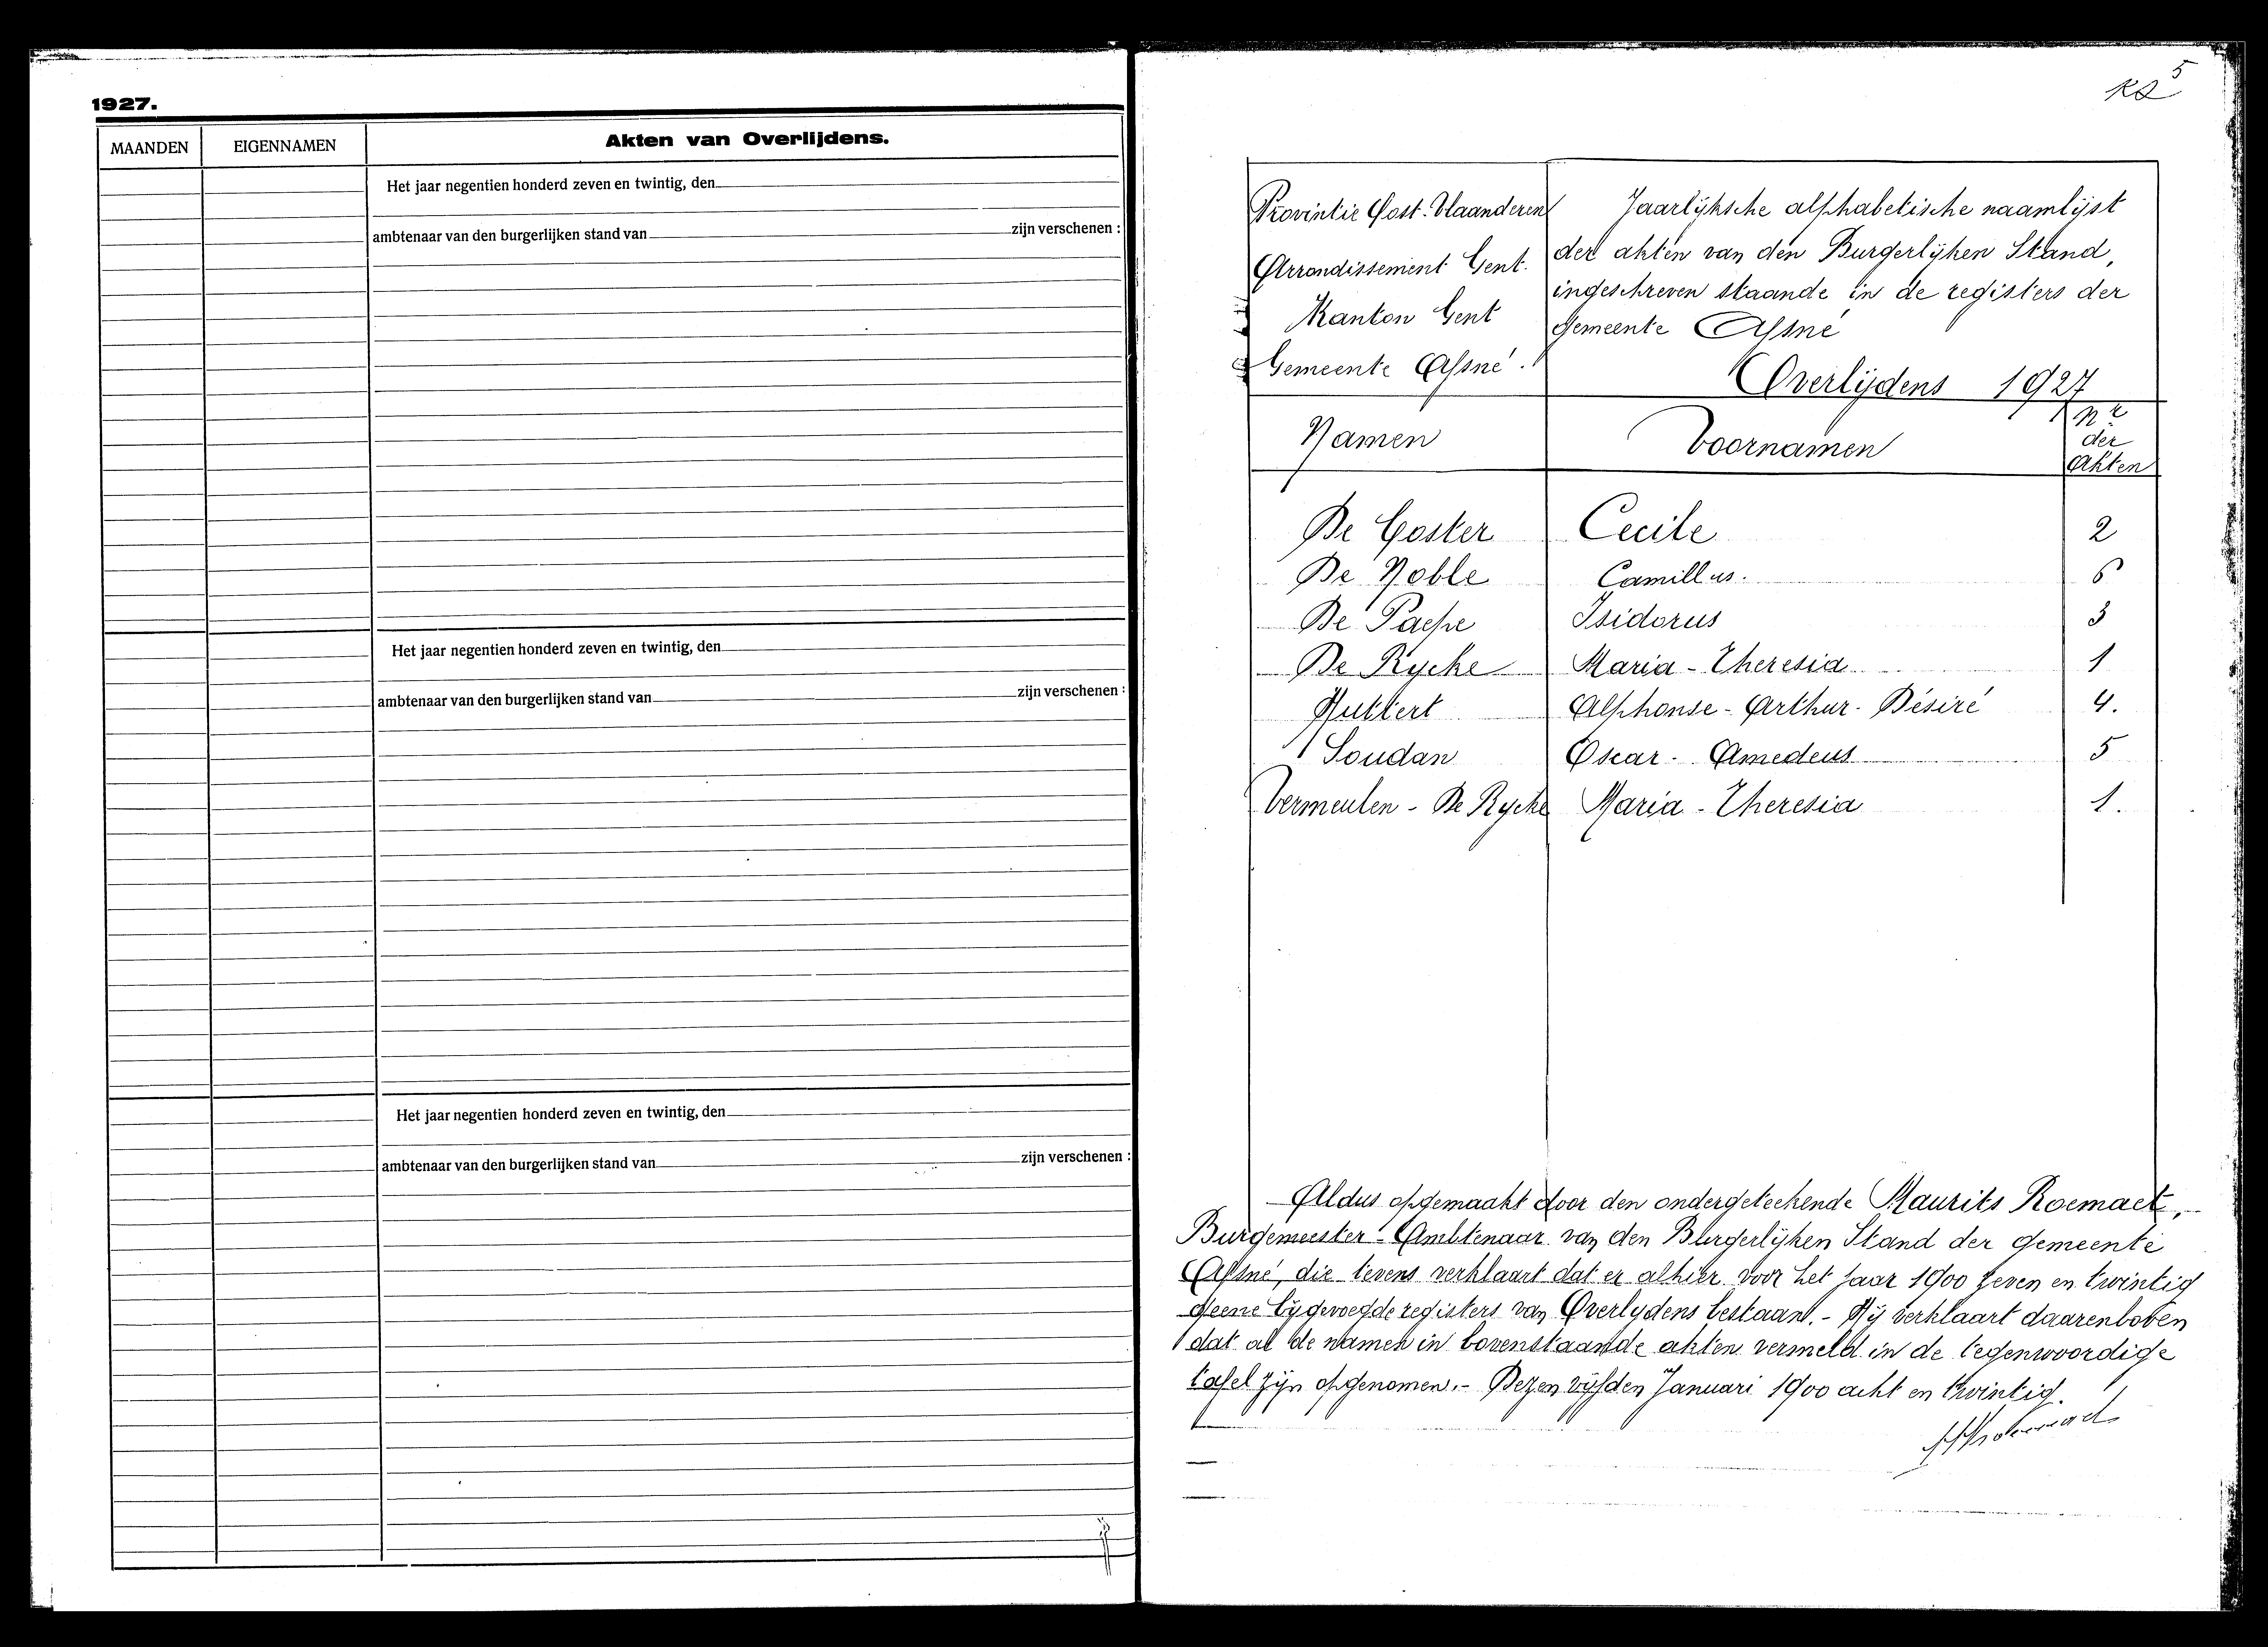 1927.
MAANDEN
EIGENNAMEN
Akten van Overlijdens.
Het jaar negentien honderd zeven en twintig, den
ambtenaar van den burgerlijken stand van zijn verschenen :
Het jaar negentien honderd zeven en twintig, den
ambtenaar van den burgerlijken stand van zijn verschenen :
Het jaar negentien honderd zeven en twintig, den
ambtenaar van den burgerlijken stand van zijn verschenen :
5
Provintie Oost-Vlaanderen
Arrondissement Gent.
Kanton Gent
Gemeente Afsné.
Jaarlijksche alphabetische naamlijst
der akten van den Burgerlijken Stand,
ingeschreven staande in de registers der
gemeente Afsné
Overlijdens 1927
Namen
Voornamen
Nr
der
Akten
De Coster Cecile 2
De Noble Camillus. 6
De Paepe Isidorus 3
De Rycke Maria-Theresia 1
Huttert Alphonse-Arthur-Désiré 4.
Soudan Oscar-Amedeus 5
Vermeulen - De Rycke Maria-Theresia 1.
Aldus opgemaakt door den ondergeteekende Maurits Roemaet,
Burgemeester-Ambtenaar van den Burgerlijken Stand der gemeente
Afsné, die tevens verklaart dat er alhier voor het jaar 1900 zeven en twintig
geene bijgevoegde registers van Overlijdens bestaan. - Hij verklaart daarenboven
dat al de namen in bovenstaande akten vermeld in de tegenwoordige
tafel zijn opgenomen. - Dezen vijfden Januari 1900 acht en twintig.